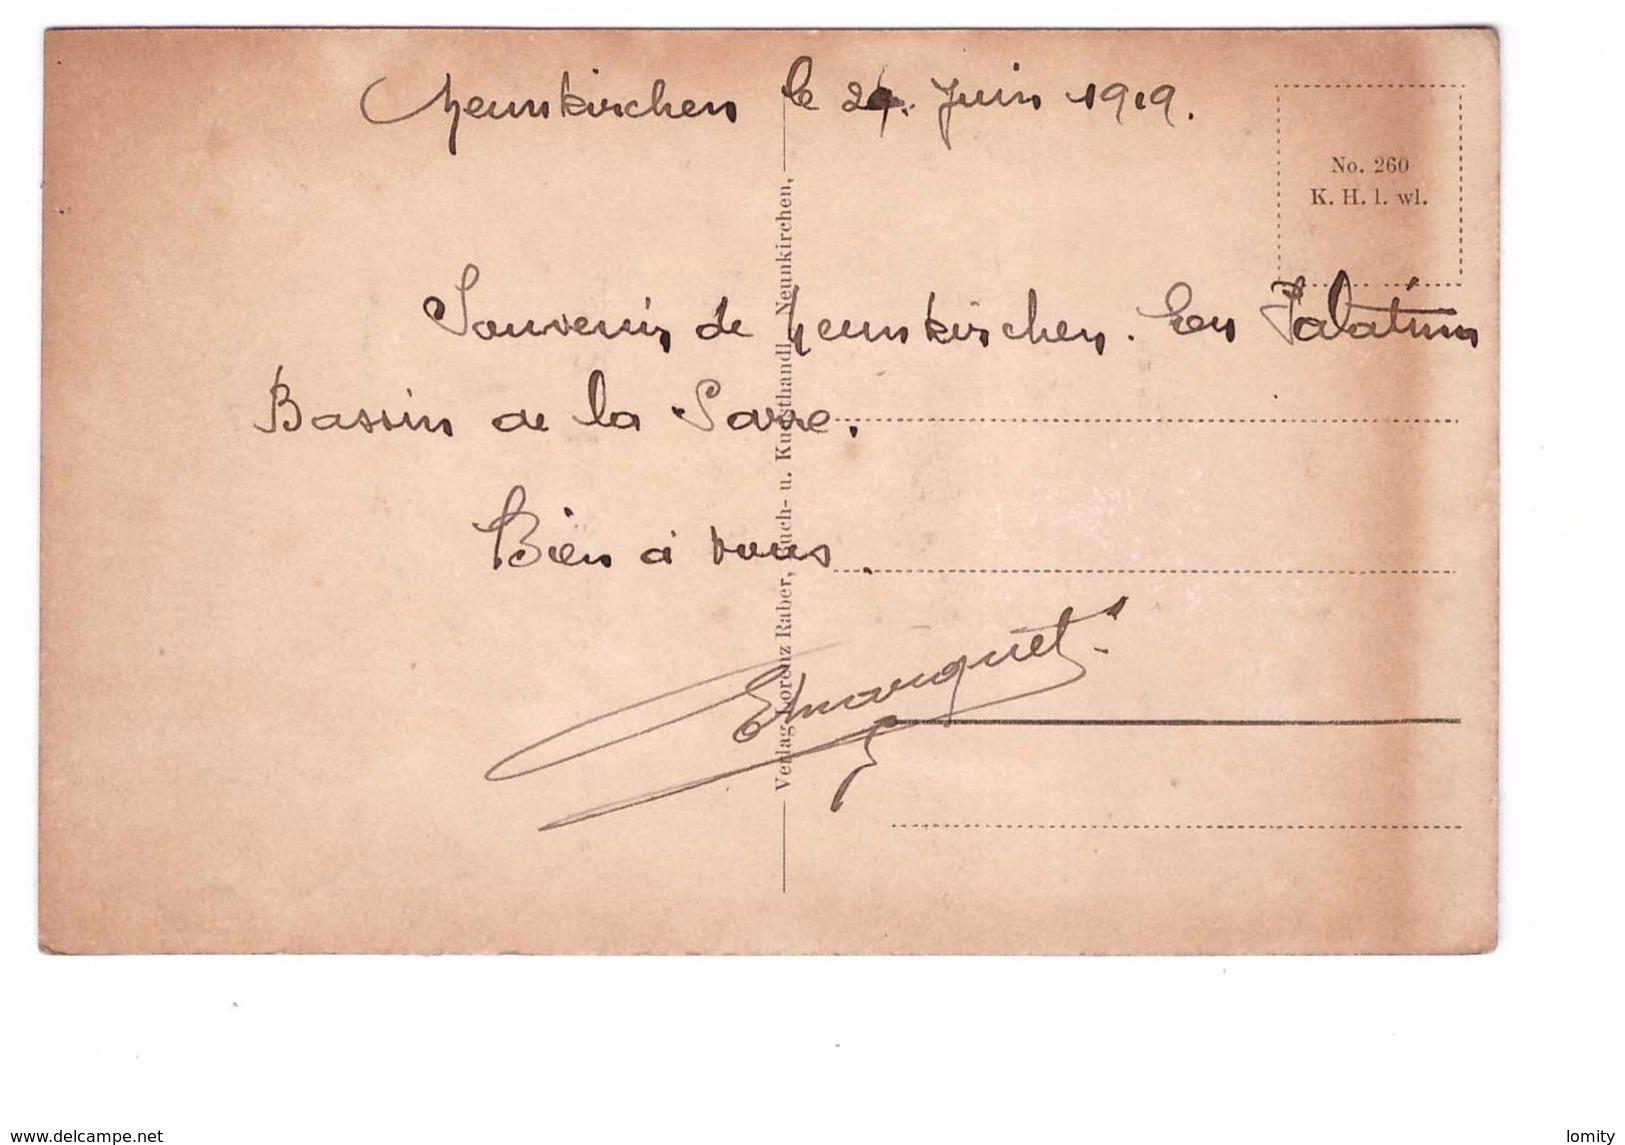 Neunkirchen le 29. Juin 1919.
No. 260
K. H. l. wl.
Souvenir de Neunkirchen. En Palatinas
Bassin de la Sarre.
Bien à vous.
Emarquet
Verlag Lorenz Raber, Buch- u. Kunsthandl. Neunkirchen,
www.delcampe.net
lomity